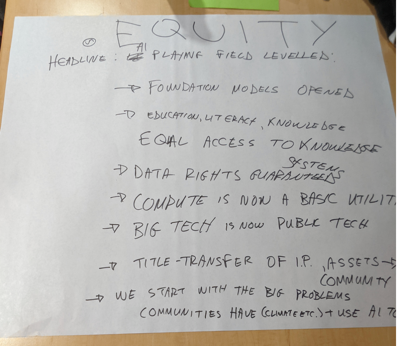 EQUITY
HEADLINE: AI PLAYING FIELD LEVELLED:
→ FOUNDATION MODELS OPENED
→ EDUCATION, LITERACY, KNOWLEDGE
EQUAL ACCESS TO KNOWLEDGE
SYSTEMS
→ DATA RIGHTS GUARANTEEDS
→ COMPUTE IS NOW A BASIC UTILIT
→ BIG TECH IS NOW PUBLIC TECH
→ TITLE-TRANSFER OF I.P., ASSETS →
COMMUNITY
→ WE START WITH THE BIG PROBLEMS
COMMUNITIES HAVE (CLIMATE ETC.) + USE AI TO